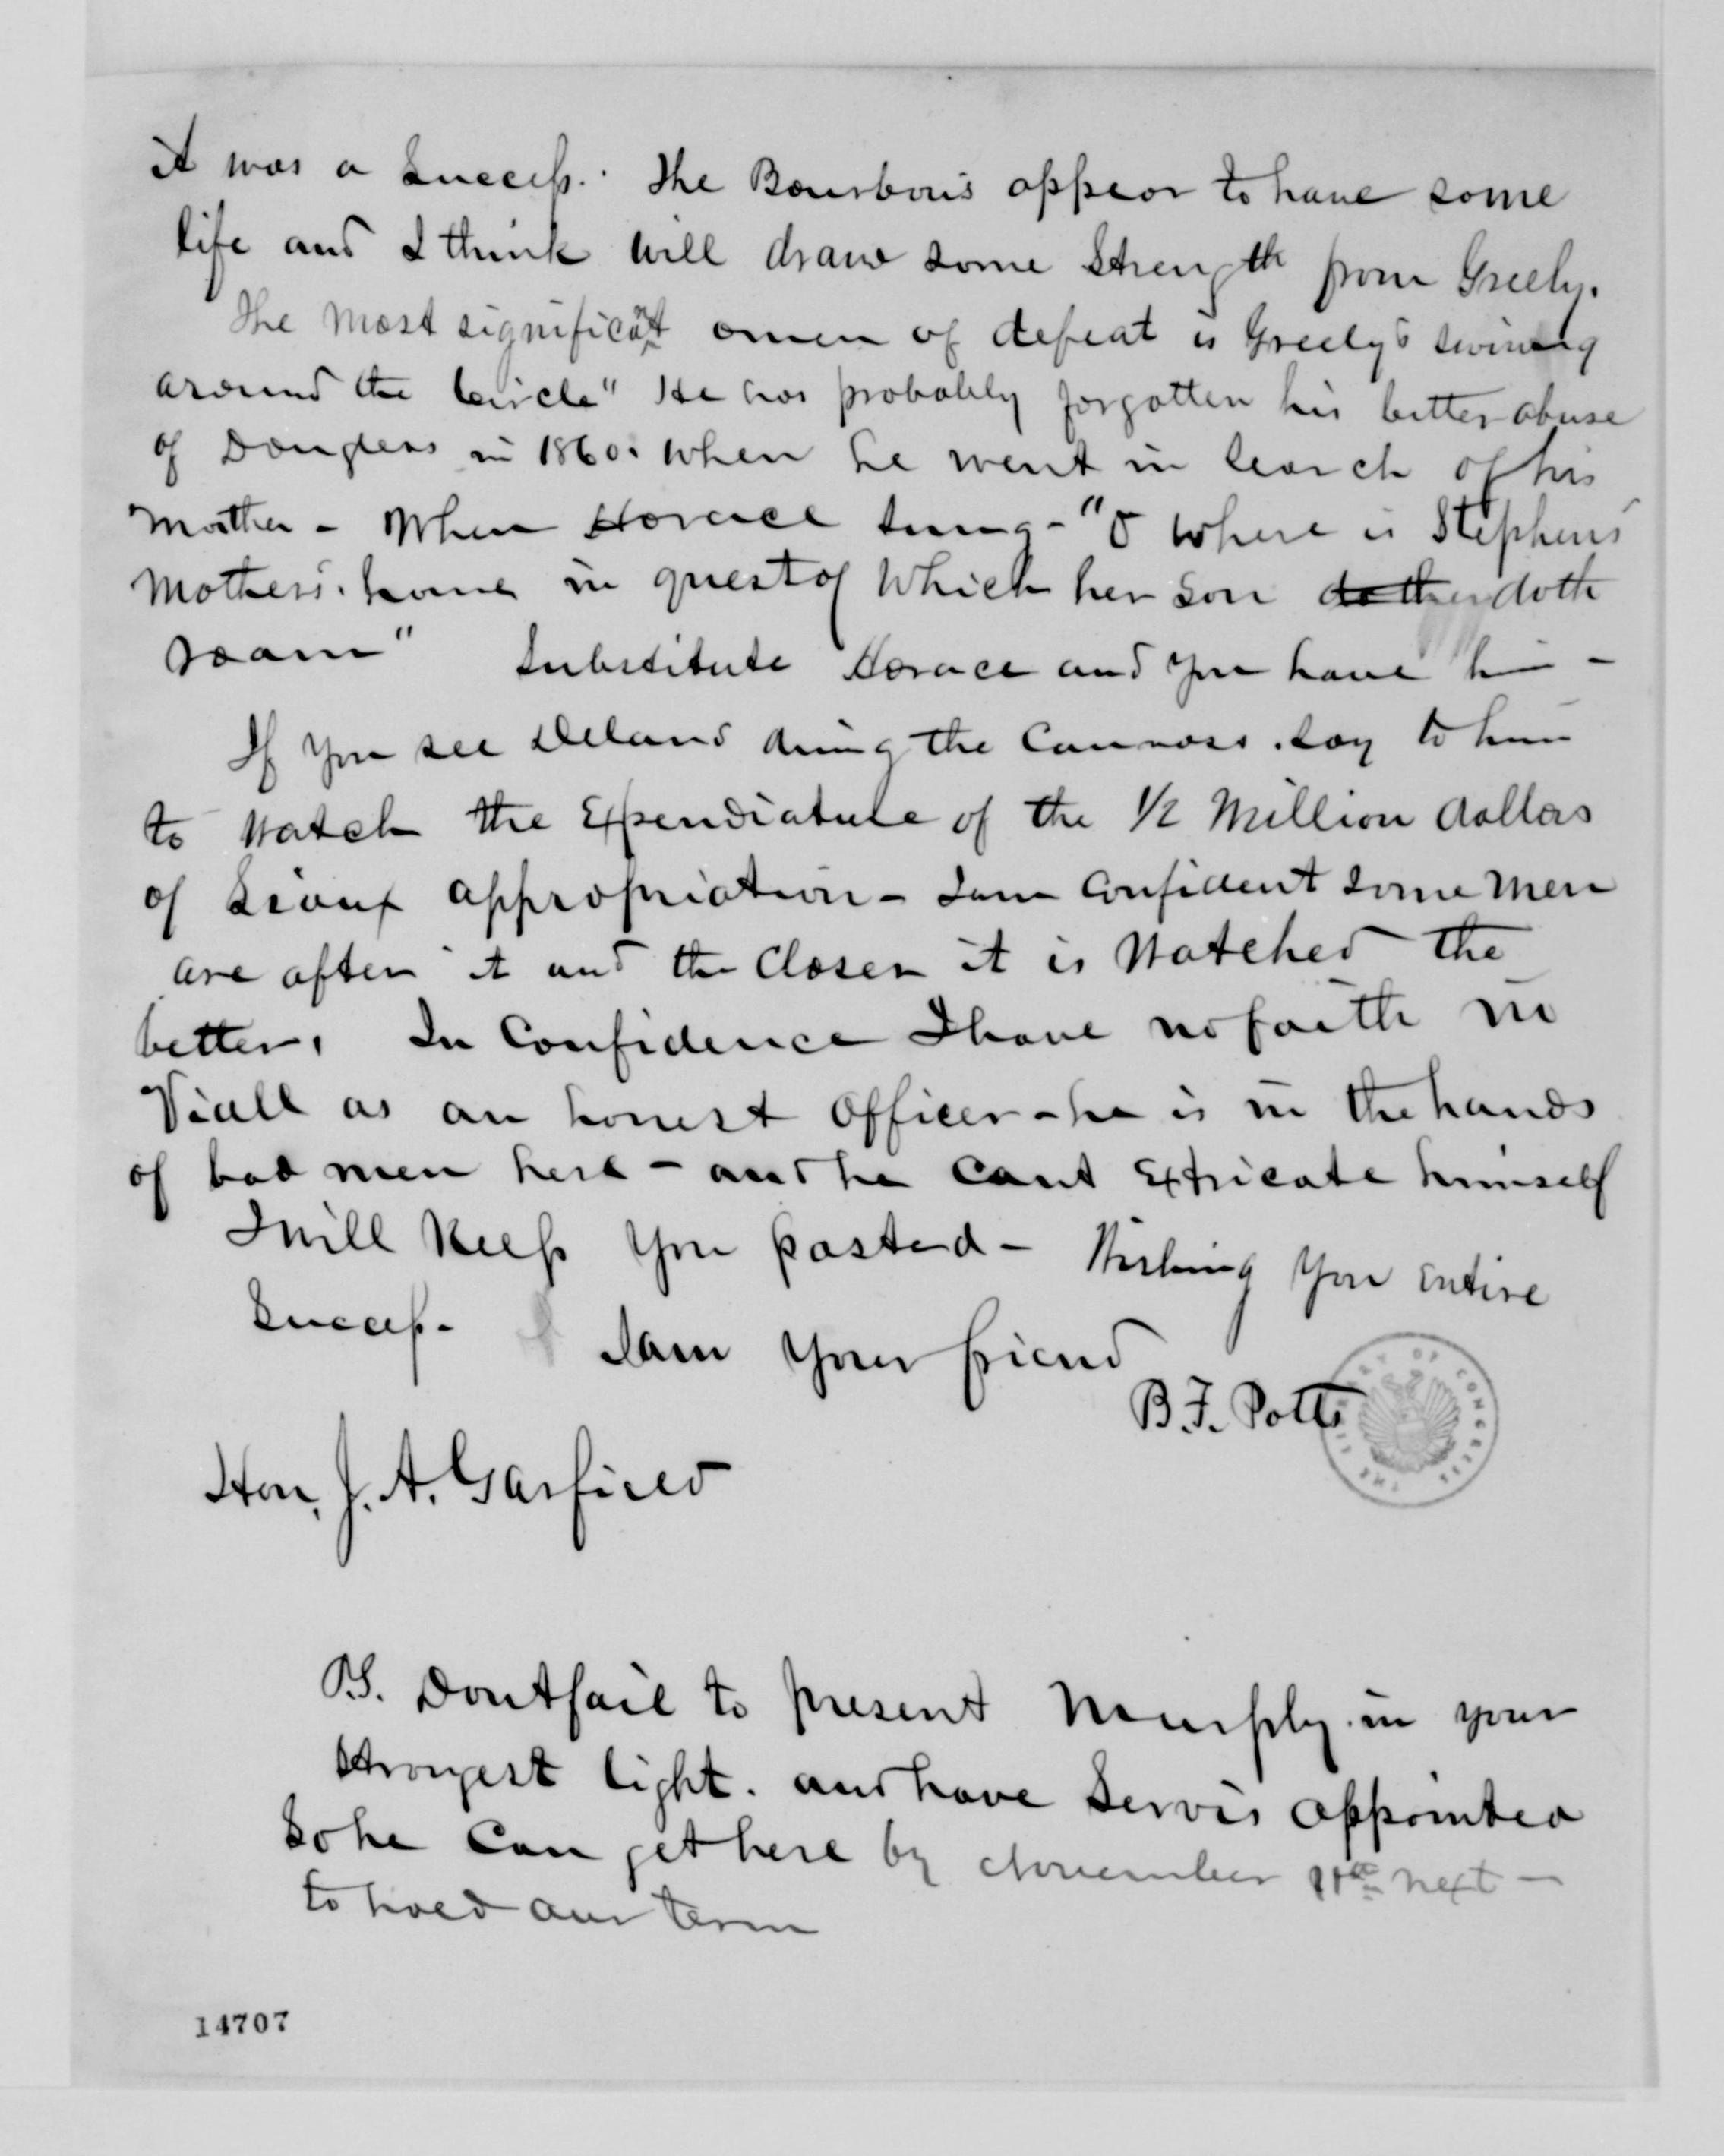 it was a success. The Bourbons appear to have some
life and I think will draw some strength from Greely.
The most significant omen of defeat is Greely's swinging
around the Circle" He has probably forgotten his bitter abuse
of Douglass in 1860. when he went in search of his
mother - When Horace sung - "O where is Stephens
Mothers. home in quest of which her son doth
roam" Substitute Horace and you have him -
If you see Delano during the Canvass. say to him
to watch the Expendiature of the 1/2 Million dollars
of Sioux appropriation - I am confident some men
are after it and the closer it is watched the
better. In Confidence I have no faith in
Viall as an honest officer - he is in the hands
of bad men here - and he cant extricate himself
I will keep you posted - Wishing you entire
Success.
I am your friend
B.F. Potts
THE LIBRARY OF CONGRESS
Hon. J. A. Garfield
P.S. Dont fail to present Murphy in your
strongest light. and have Servis appointed
So he can get here by November next -
to hold our term
14707